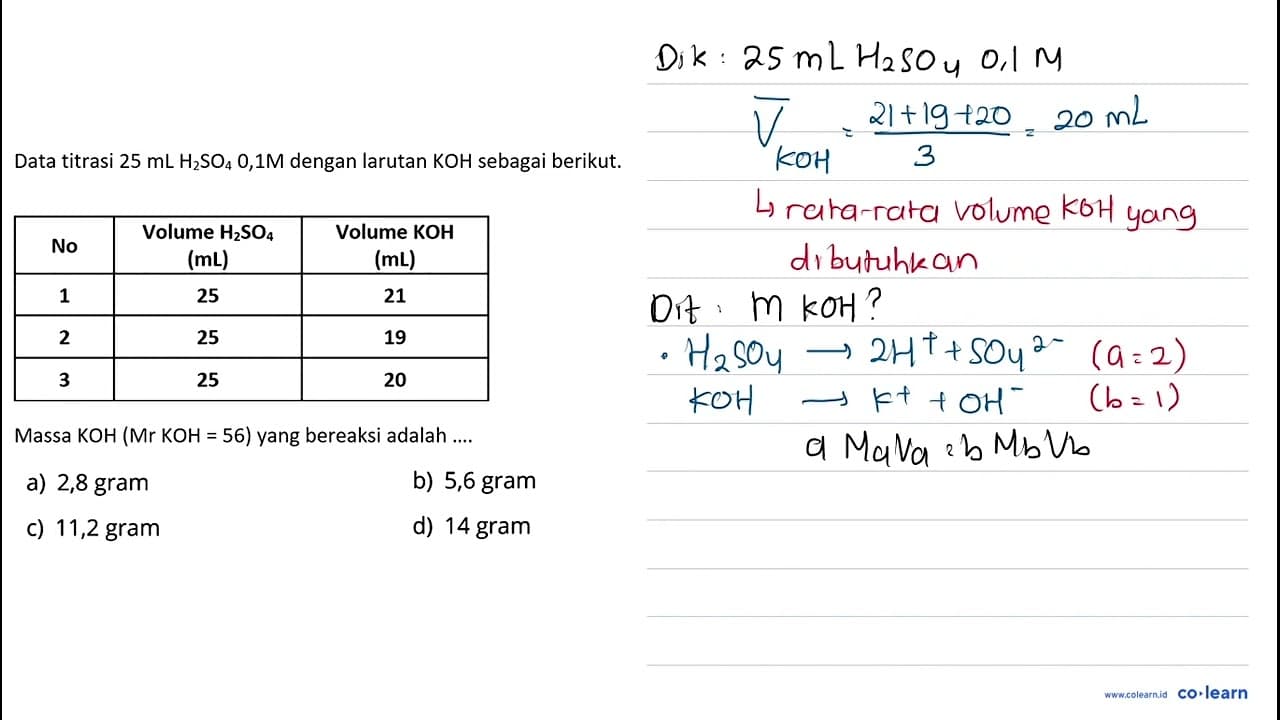 Data titrasi 25 mL H₂SO₄ 0,1M dengan larutan KOH sebagai berikut.
No Volume H₂SO₄ (mL) Volume KOH (mL)
1 25 21
2 25 19
3 25 20
Massa KOH (Mr KOH = 56) yang bereaksi adalah ....
a) 2,8 gram b) 5,6 gram
c) 11,2 gram d) 14 gram
Dik : 25 mL H₂SO₄ 0,1 M
V̅ KOH = (21+19+20)/3 = 20 mL
↳ rata-rata volume KOH yang
dibutuhkan
Dit : m KOH ?
• H₂SO₄ → 2H⁺ + SO₄²⁻ (a = 2)
KOH → K⁺ + OH⁻ (b = 1)
a Ma Va = b Mb Vb
www.colearn.id co·learn